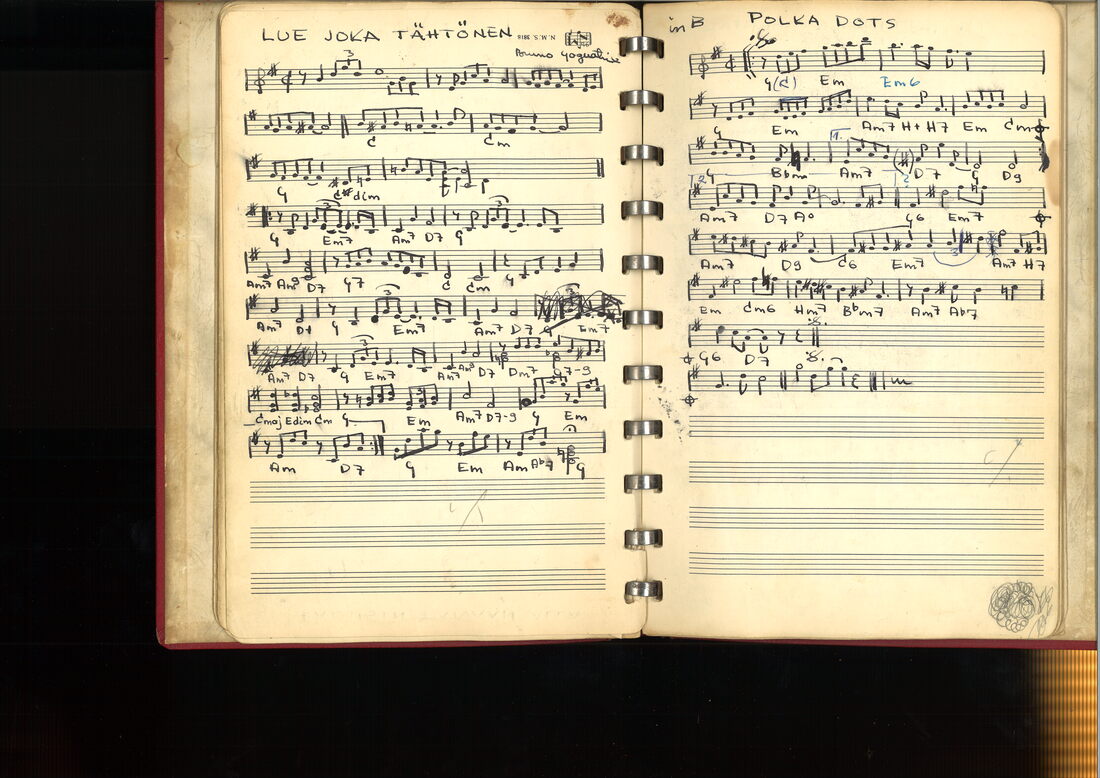 LUE JOKA TÄHTÖNEN
N.M.S. 5818
3
C Cm
G C#dim
3 3
G Em7 Am7 D7 G
Am7 Am7 D7 G7 C Cm G
3
Am7 D7 G Em7 Am7 D7 G Em7
3
Am7 D7 G Em7 Am7 D7 Dm7
Cmaj Edim Cm G Em Am7 D7-9 G Em
Am D7 G Em Am Ab7 G
in B POLKA DOTS
G(C) Em Em6
G Em Am7 H+ H7 Em Cm
1.
G Bbm Am7 D7 G D9
2.
Am7 D7 A° G6 Em7
Am7 D9 C6 Em7 Am7 H7
Em Cm6 Hm7 Bbm7 Am7 Ab7
G6 D7